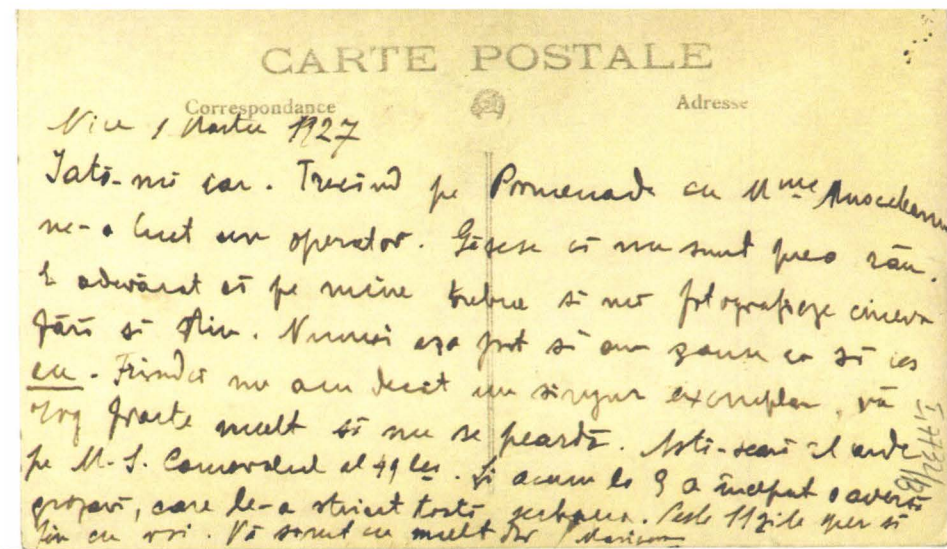 CARTE POSTALE
Correspondance
Adresse
Nice 1 Martie 1927
Iată-mă iar. Trecând pe Promenade cu Mme Musceleanu
ne-a luat un operator. Găsesc că nu sunt prea rău.
E adevărat că pe mine trebue să mă fotografieze cineva
fără să știu. Numai așa pot să am șanse ca să ies
eu. Fiindcă nu am decât un singur exemplar, vă
rog foarte mult să nu se peardă. Astă-seară îl arde
pe M-S. Carnavalul al 49 lea. Și acum la 9 a început o aversă
groznică, care le-a stricat toată serbarea. Peste 11 zile sper să
fiu cu voi. Vă sărut cu mult dor